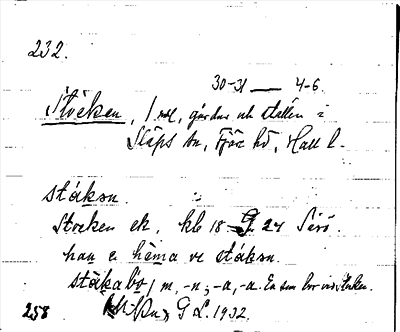 232.
30-31 — 4-6.
Stocken, 1 mtl, gårdar och ställen i
Släps sn, Fjäre hd, Hall l-
ståkən.
Stocken ek, kbl 18 G. 24 Särö.
han e hèma ve ståkən.
ståkabo, m, -n; -a, -a. En som bor vid Stocken.
258 G L. 1932.